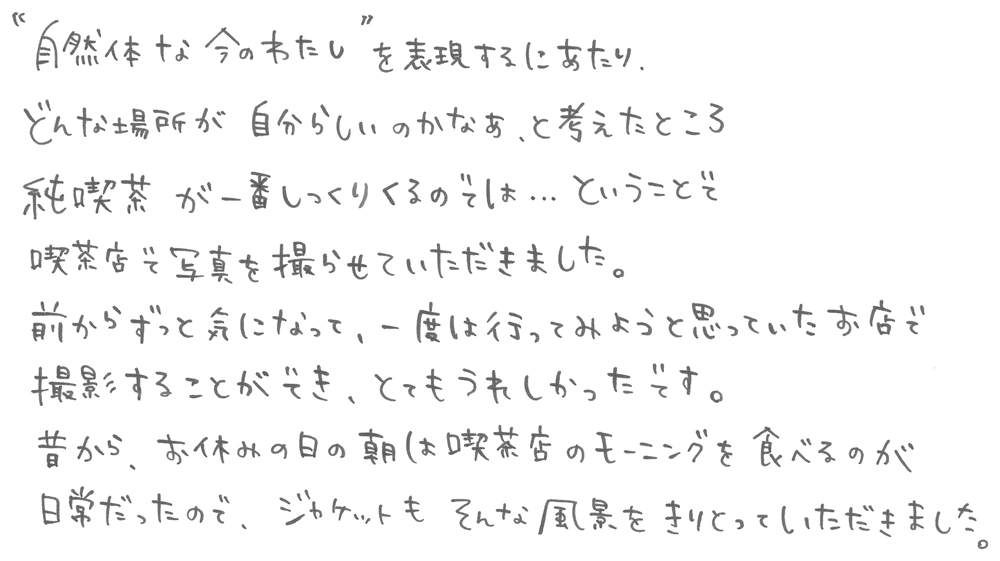 "自然体な今のわたし"を表現するにあたり、
どんな場所が自分らしいのかなぁ、と考えたところ
純喫茶が一番しっくりくるのでは…ということで
喫茶店で写真を撮らせていただきました。
前からずっと気になって、一度は行ってみようと思っていたお店で
撮影することができ、とてもうれしかったです。
昔から、お休みの日の朝は喫茶店のモーニングを食べるのが
日常だったので、ジャケットもそんな風景をきりとっていただきました。